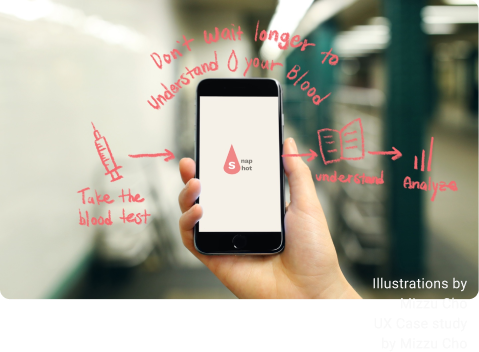 Don't Wait longer to
Understand your Blood
S nap
hot
Take the
blood test
understand
Analyze
Illustrations by
Mizzu Cho
UX Case study
by Mizzu Cho